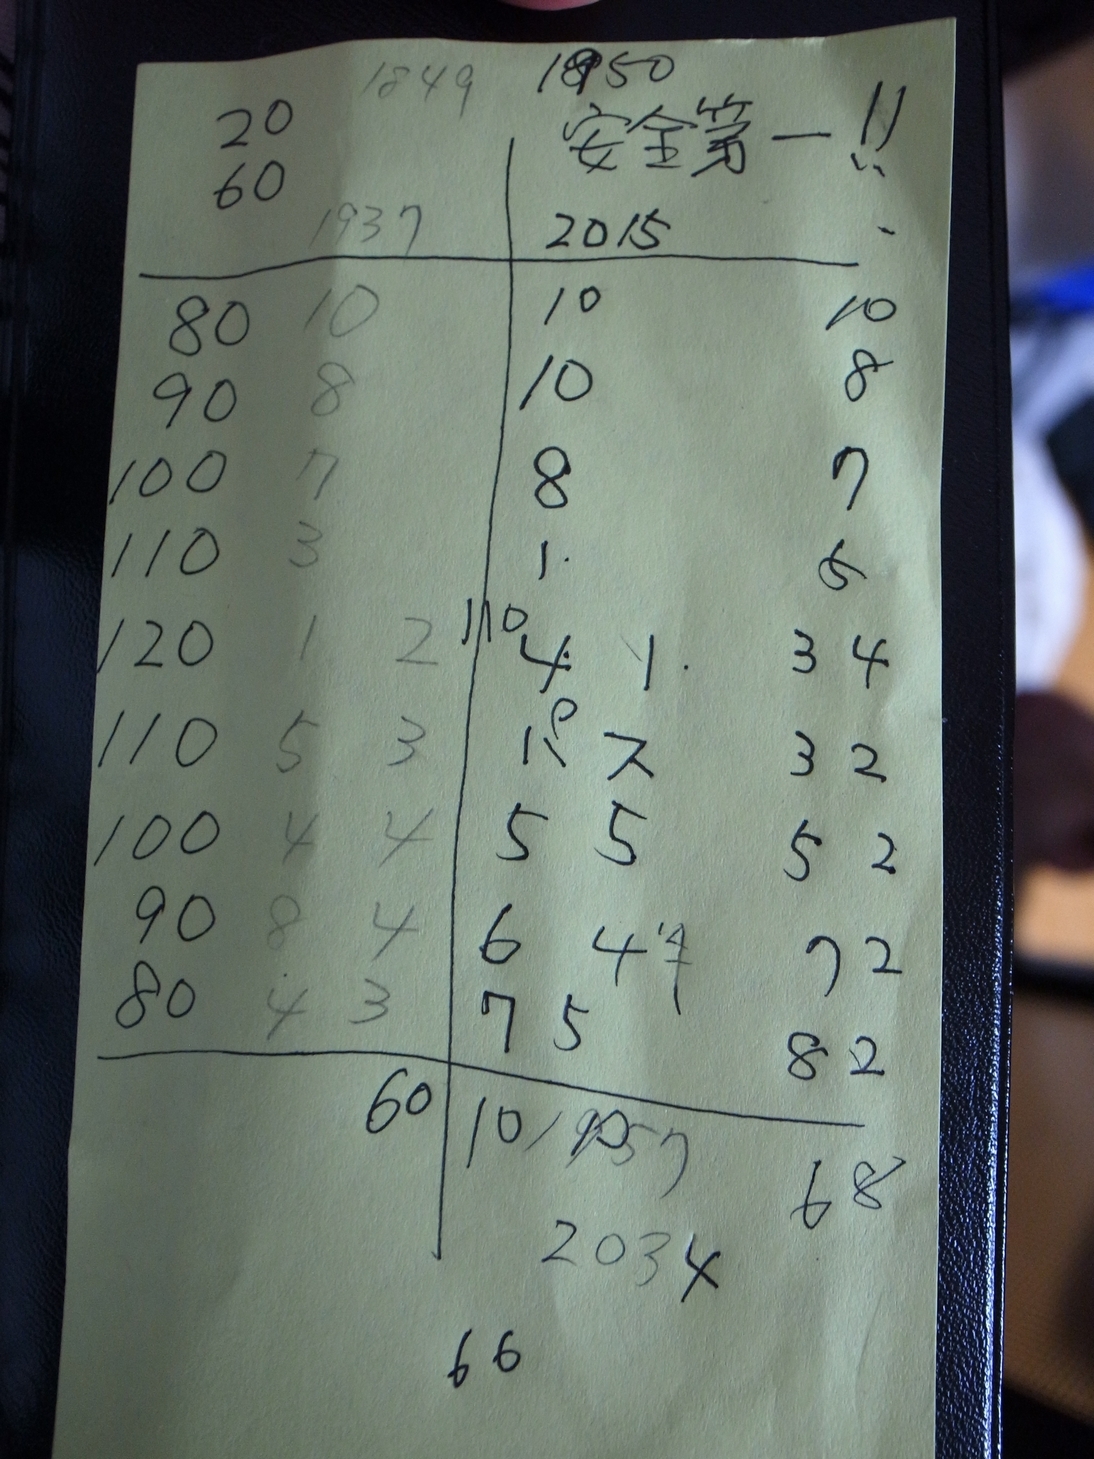 1849 1950
20 安全第一!!
60
1937 2015
80 10 10 10
90 8 10 8
100 7 8 7
110 3 1. 6
110
120 1 2 4. 1. 3 4
110 5 3 パス 3 2
100 4 4 5 5 5 2
90 8 4 6 4 7 2
80 4 3 7 5 8 2
60 10 68
2034
66